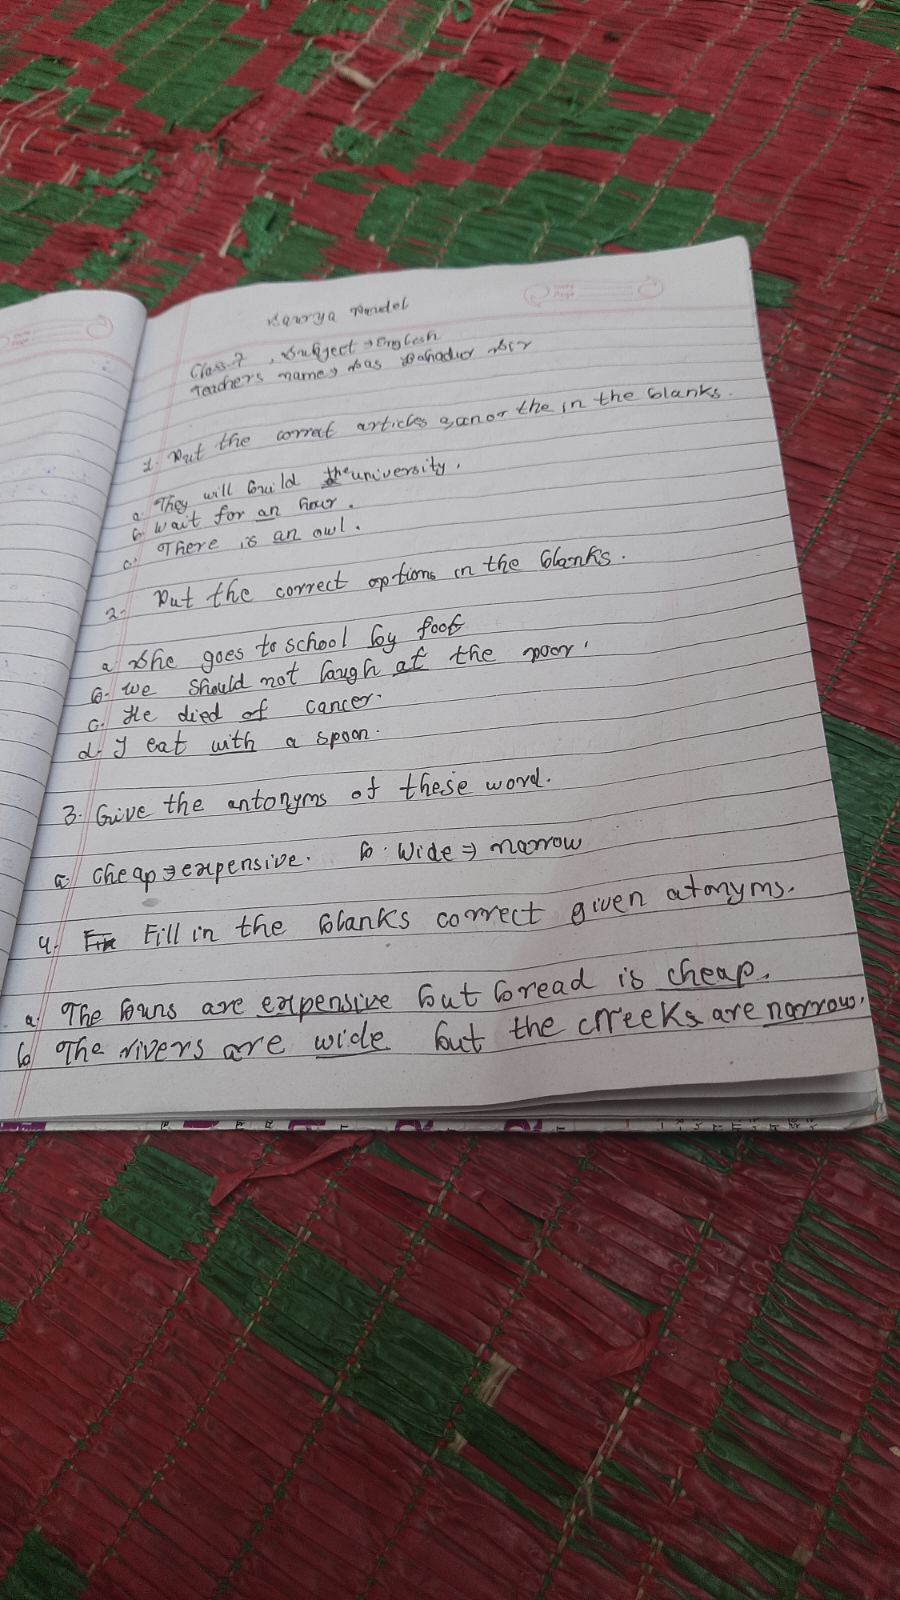 Class-7 , Subject → English
Teachers name →
1. Put the correct articles a, an or the in the blanks.
a. They will build the university.
b. wait for an hour.
c. There is an owl.
2. Put the correct options in the blanks.
a. She goes to school by foot
b. we should not laugh at the poor.
c. He died of cancer.
d. I eat with a spoon.
3. Give the antonyms of these word.
a. cheap → expensive. b. Wide ⇒ narrow
4. Fill in the blanks correct given atonyms.
a. The buns are expensive but bread is cheap.
b The rivers are wide but the crreeks are narrow.